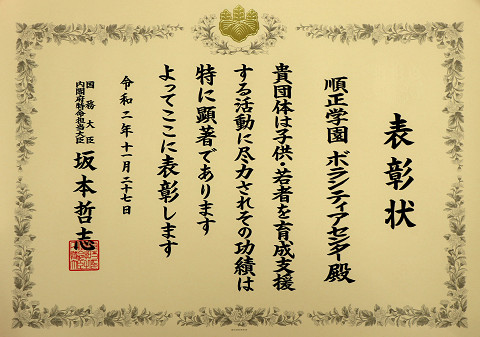 表彰状
順正学園 ボランティアセンター殿
貴団体は子供・若者を育成支援
する活動に尽力されその功績は
特に顕著であります
よってここに表彰します
令和二年十一月二十七日
国務大臣
内閣府特命担当大臣
坂本哲志